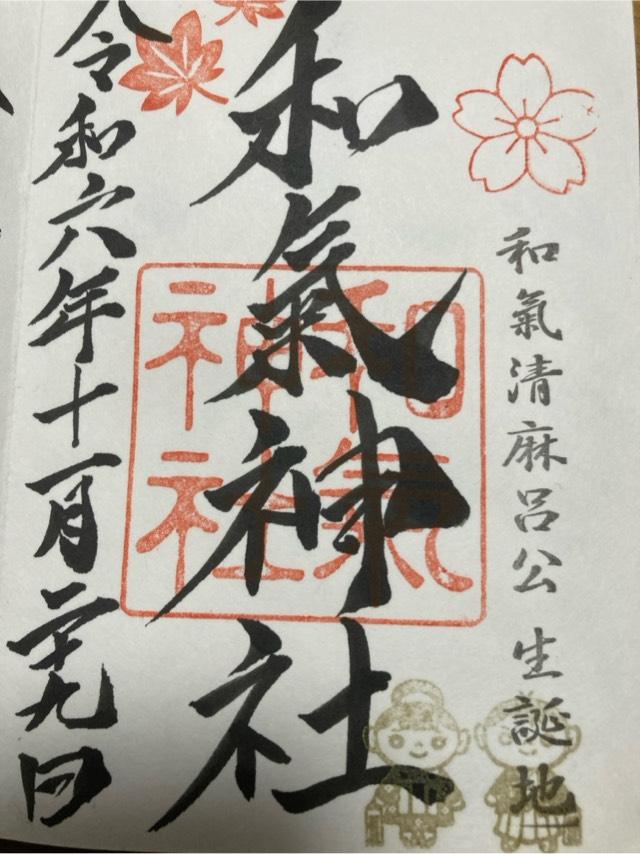 和氣清麻呂公 生誕地
和氣神社
和氣
神社
令和六年十一月二十九日